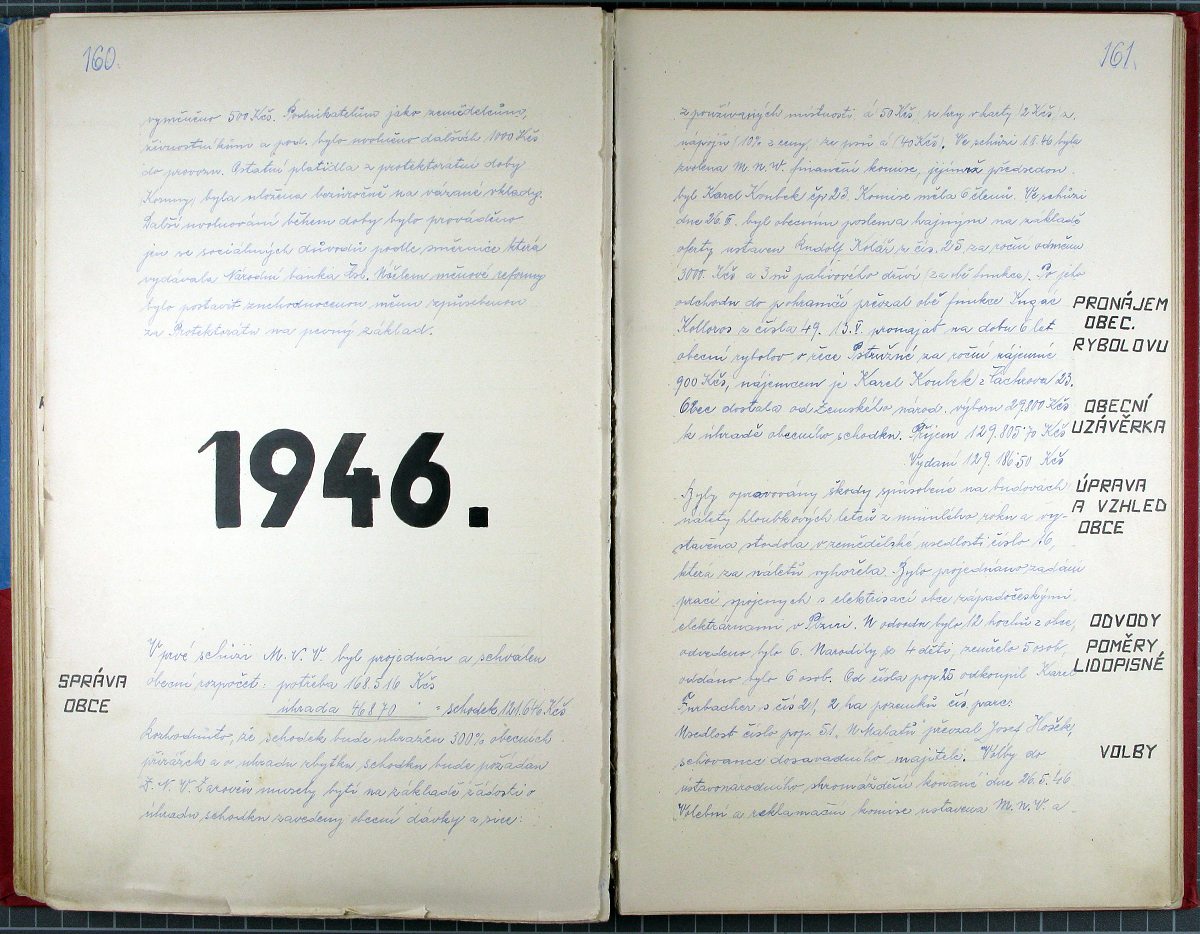 160.
vyměněno 500 Kčs. Podnikatelům jako zemědělcům,
živnostníkům a pod. bylo uvolněno dalších 1000 Kčs
do provozu. Ostatní platidla z protektorátní doby
Koruny, byla uložena bezúročně na vázané vklady.
Další uvolňování během doby bylo prováděno
jen ze sociálných důvodů podle směrnic které
vydávala Národní banka Čsl. Účelem měnové reformy
bylo postavit znehodnocenou měnu způsobenou
za Protektorátu na pevný základ.
1946.
SPRÁVA
OBCE
V prvé schůzi M. N. V. byl projednán a schválen
obecní rozpočet: potřeba 168.516 Kčs
úhrada 46870 " = schodek 121.646 Kčs
Rozhodnuto, že schodek bude uhražen 300% obecních
přirážek a o úhradu zbytku schodku bude požádán
Z. N. V. Zároveň musely býti na základě žádosti o
úhradu schodku zavedeny obecní dávky a sice:
161.
z používaných místností á 50 Kčs, ze hry v karty (2 Kčs) z
nápojů (10% z ceny) ze psů á (40 Kčs). Ve schůzi 1.6.46 byla
zvolena M. N. V. finanční komise, jejímž předsedou
byl Karel Koubek čp 23. Komise měla 6 členů. Ve schůzi
dne 26. byl obecním poslem a hajným na základě
oferty ustaven Rudolf Kolář z čís. 25 za roční odměnu
3000 Kčs a 3 m palivového dříví (za obě funkce). Po jeho
odchodu do pohraničí převzal obě funkce Ignác
Kolloros z čísla 49. 15. V. pronajat na dobu 6 let
obecní rybolov v řece Pstružné za roční nájemné
900 Kčs, nájemcem je Karel Koubek z Čachrova 23.
Obec dostala od Zemského národ. výboru 29.800 Kčs
k úhradě obecního schodku. Příjem 129.805.70 Kčs
Vydání 129.186.50 Kčs
Byly opravovány škody způsobené na budovách
nálety hloubkových letců z minulého roku a vy-
stavěna stodola v zemědělské usedlosti číslo 16,
která za náletů vyhořela. Bylo projednáno zadání
prací spojených s elektrisací obce západočeskými
elektrárnami v Plzni. U odvodu bylo 12 hochů z obce,
odvedeno bylo 6. Narodily se 4 děti, zemřelo 5 osob,
oddáno bylo 6 osob. Od čísla pop 25 odkoupil Karel
Furbacher s čís 21, 2 ha pozemků čís. parc:
Usedlost číslo pop. 51. "U Mabatů" převzal Josef Hošek,
schovanec dosavadního majitele. Volby do
ústavonárodního shromáždění konané dne 26.5.46
Volební a reklamační komise ustavena M. N. V. a
PRONÁJEM
OBEC.
RYBOLOVU
OBECNÍ
UZÁVĚRKA
ÚPRAVA
A VZHLED
OBCE
ODVODY
POMĚRY
LIDOPISNÉ
VOLBY